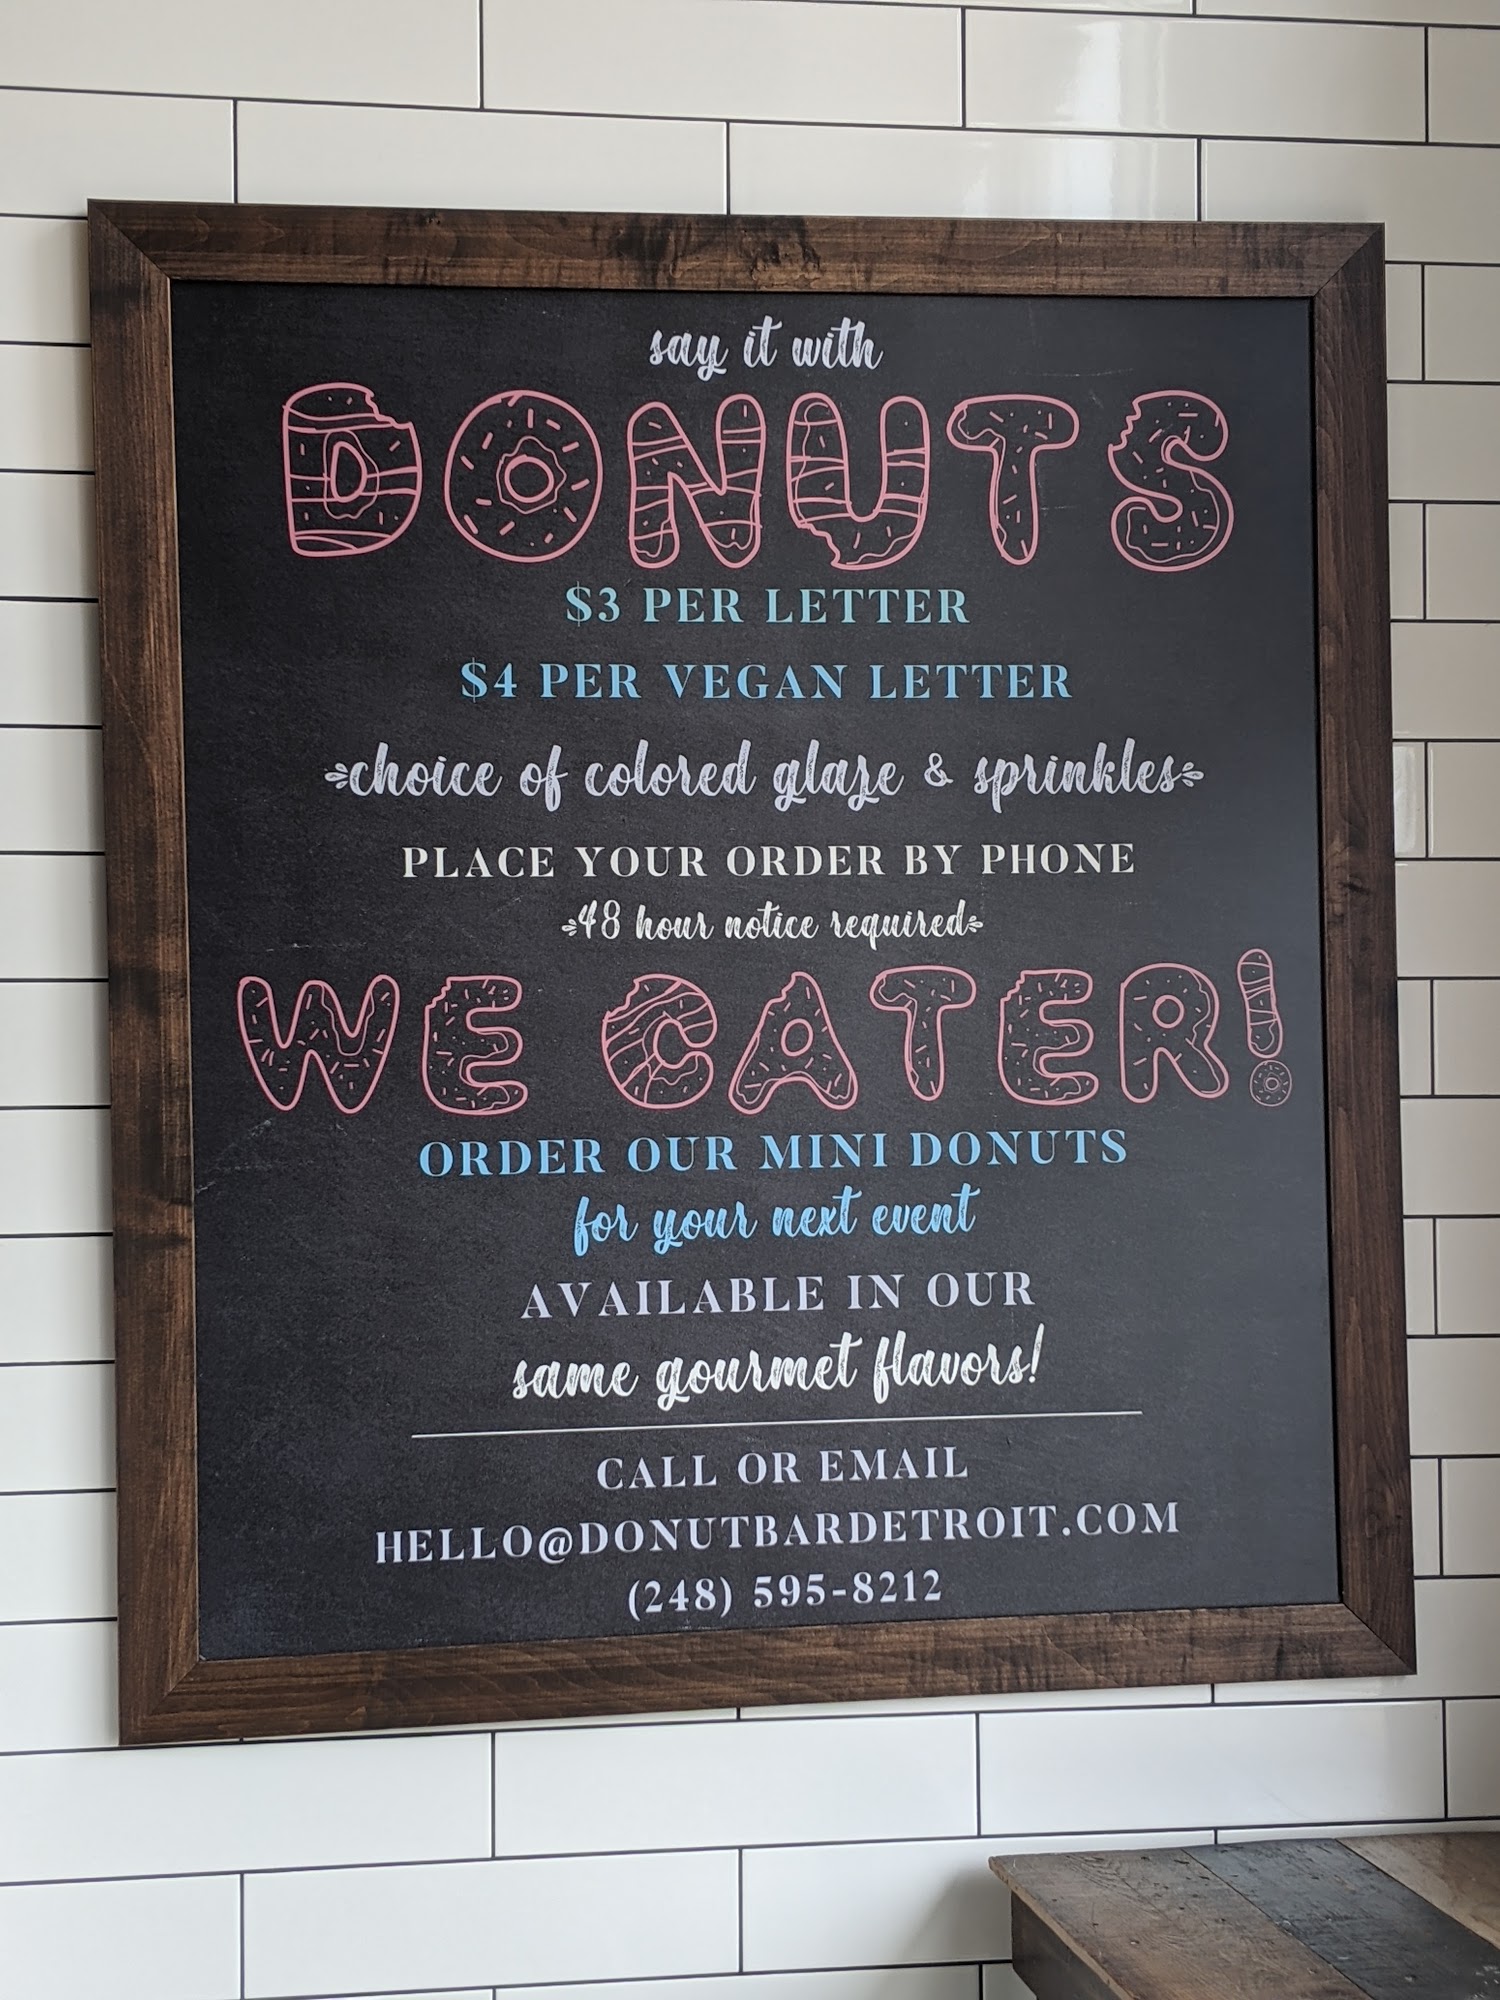 say it with
DONUTS
$3 PER LETTER
$4 PER VEGAN LETTER
choice of colored glaze & sprinkles
PLACE YOUR ORDER BY PHONE
48 hour notice required
WE CATER!
ORDER OUR MINI DONUTS
for your next event
AVAILABLE IN OUR
same gourmet flavors!
CALL OR EMAIL
HELLO@DONUTBARDETROIT.COM
(248) 595-8212